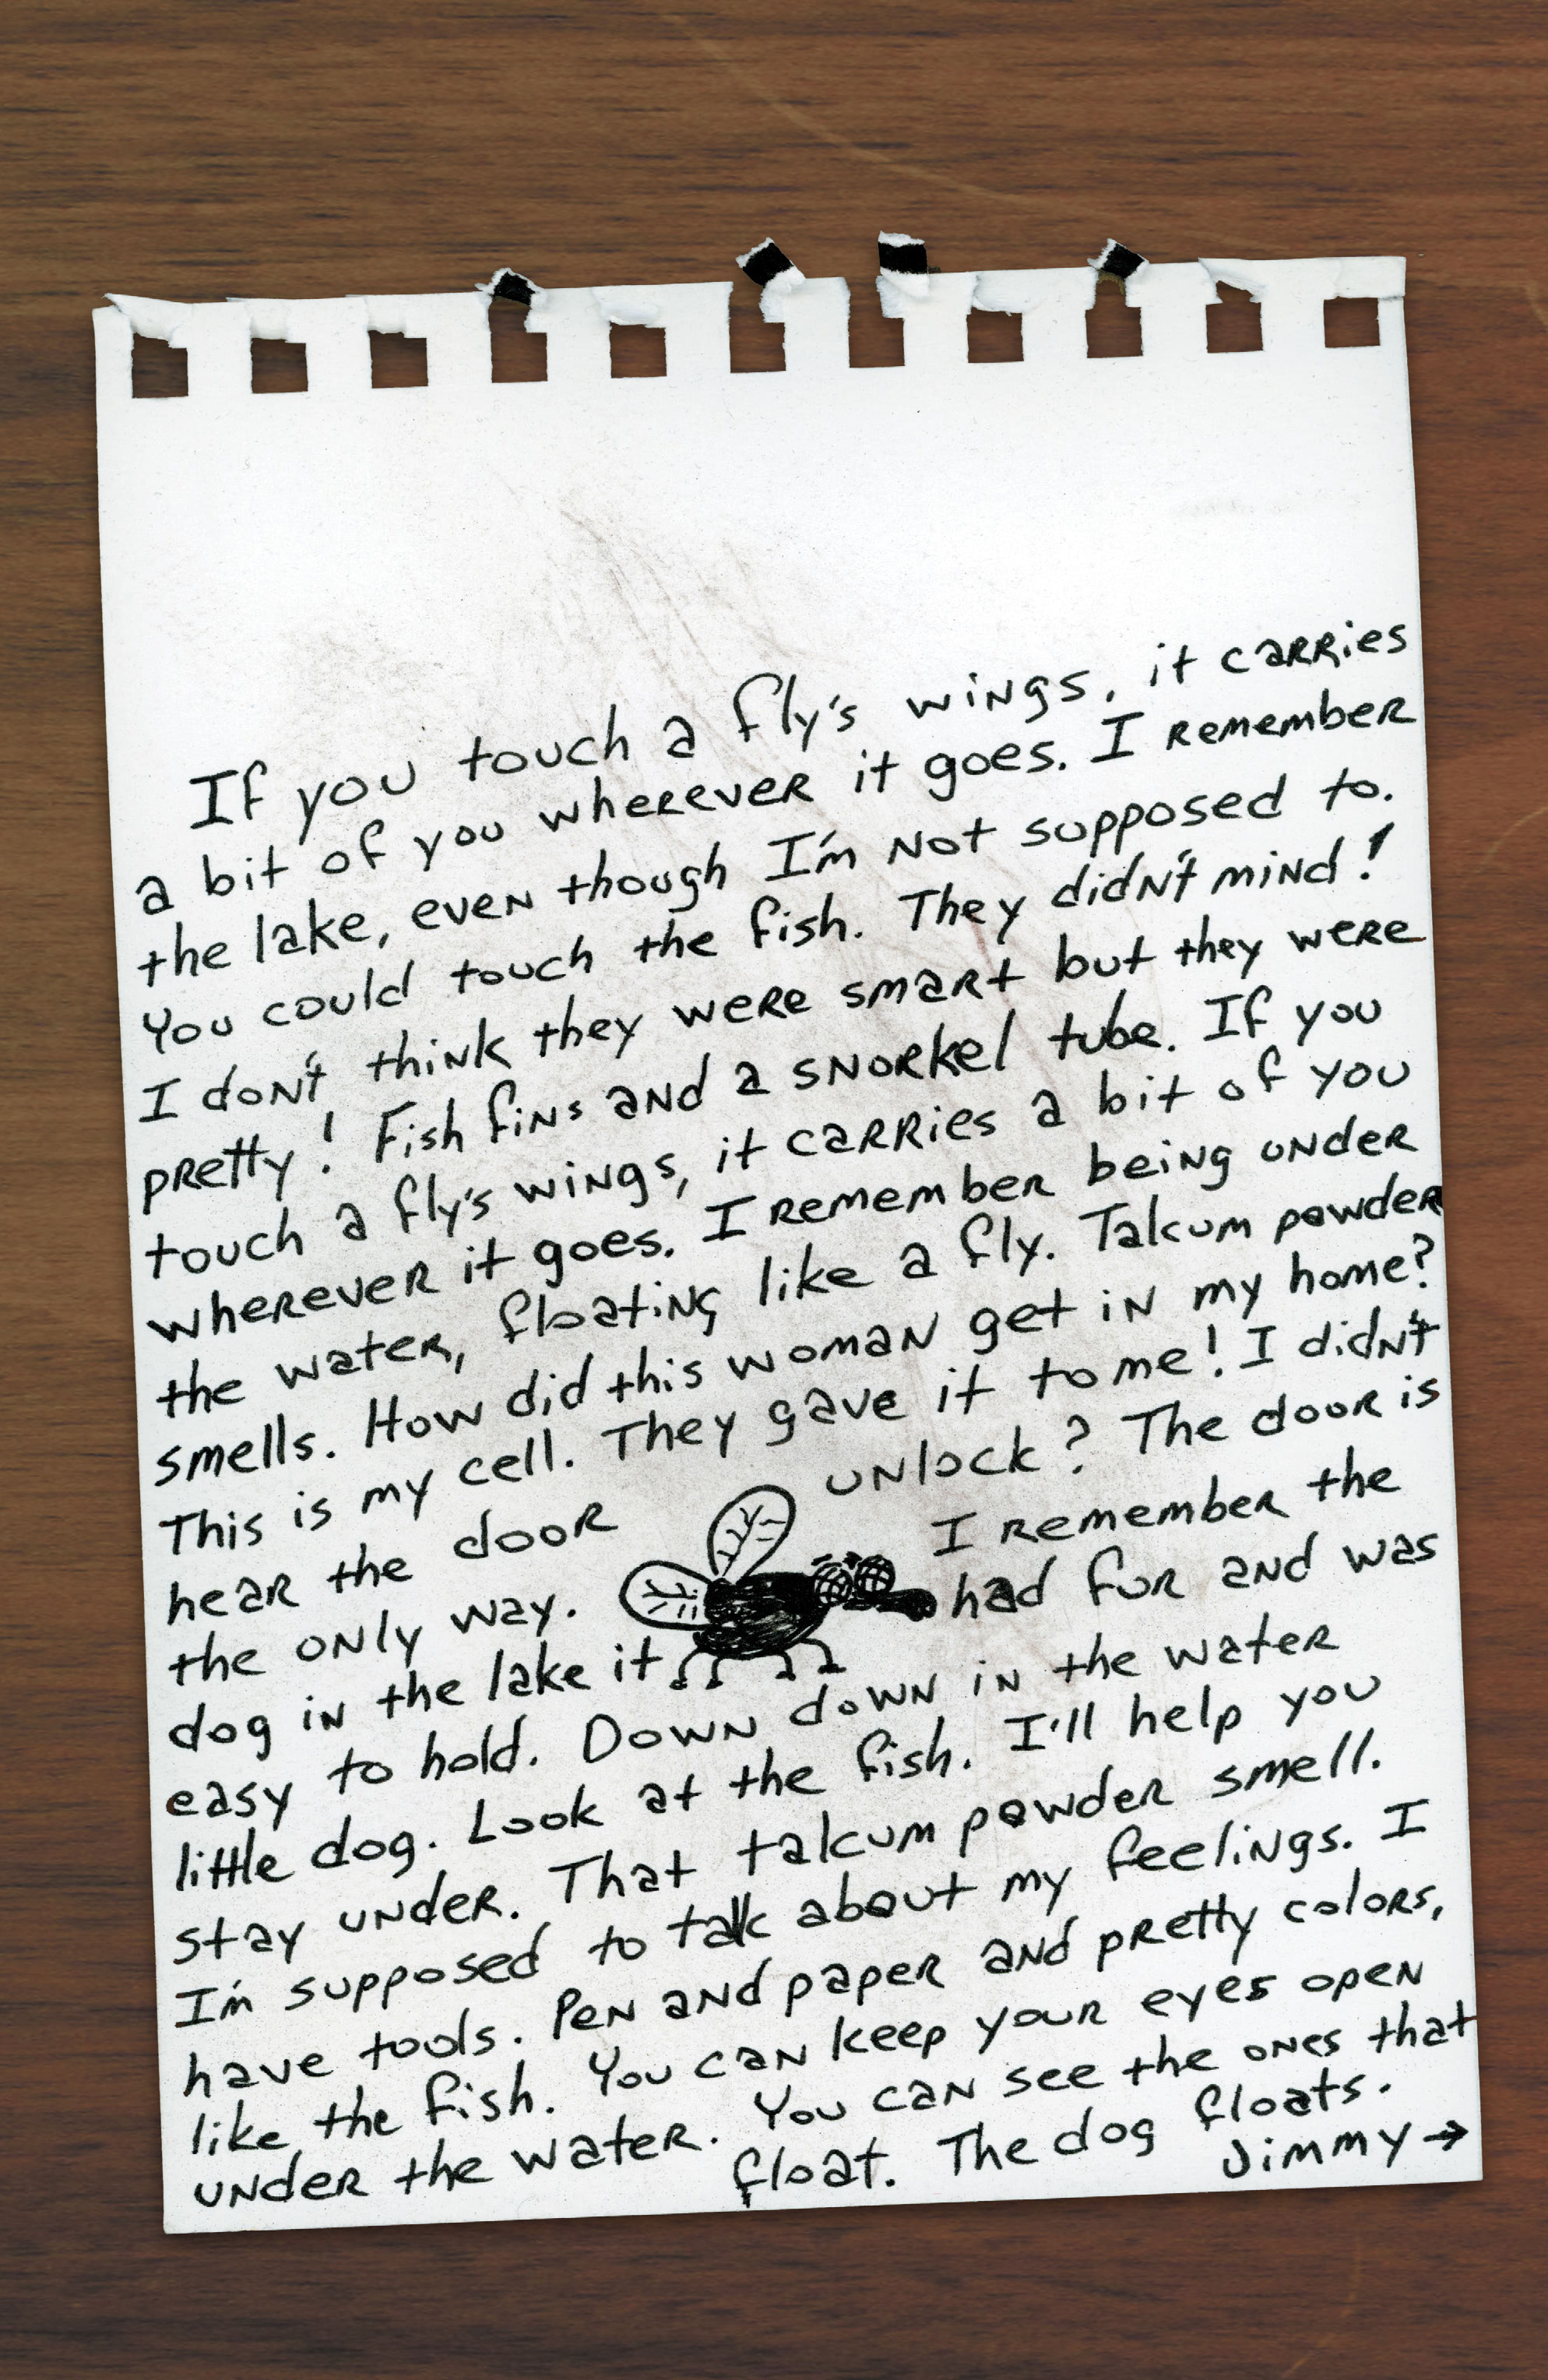 If you touch a fly's wings, it carries
a bit of you wherever it goes. I remember
the lake, even though I'm not supposed to.
You could touch the fish. They didn't mind!
I don't think they were smart but they were
pretty! Fish fins and a snorkel tube. If you
touch a fly's wings, it carries a bit of you
wherever it goes. I remember being under
the water, floating like a fly. Talcum powder
smells. How did this woman get in my home?
This is my cell. They gave it to me! I didn't
hear the door unlock? The door is
the only way. I remember the
dog in the lake it had fur and was
easy to hold. Down down in the water
little dog. Look at the fish. I'll help you
stay under. That talcum powder smell.
I'm supposed to talk about my feelings. I
have tools. Pen and paper and pretty colors,
like the fish. You can keep your eyes open
under the water. You can see the ones that
float. The dog floats.
Jimmy→